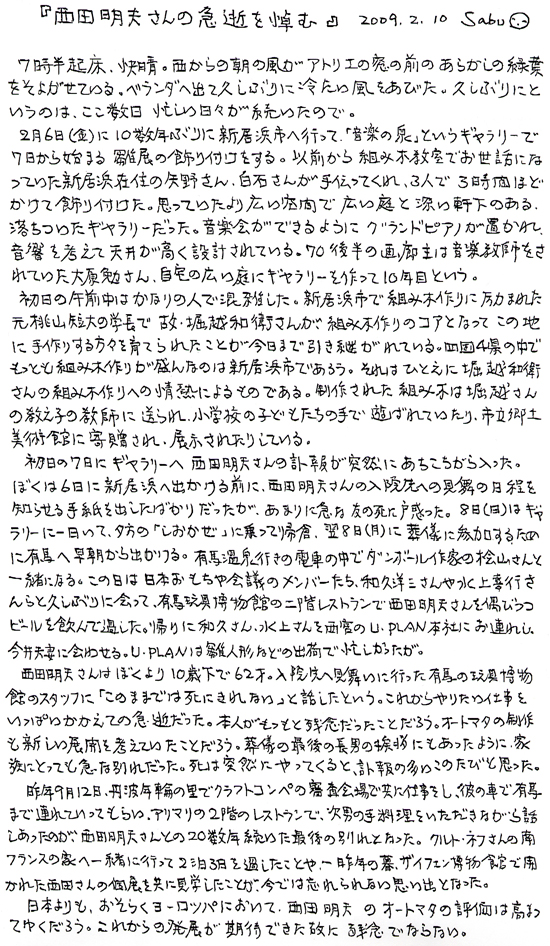 『西田明夫さんの急逝を悼む』 2009.2.10 Sabu
7時半起床、快晴。西からの朝の風がアトリエの窓の前のあらかしの緑葉
をそよがせている。ベランダへ出て久しぶりに冷たい風をあびた。久しぶりにと
いうのは、ここ数日 忙しい日々が続いたので。
2月6日(金)に10数年ぶりに新居浜市へ行って、「音楽の泉」というギャラリーで
7日から始まる 雛展の飾り付けをする。以前から組み木教室でお世話にな
っていた新居浜在住の矢野さん、白石さんが手伝ってくれ、3人で3時間ほど
かけて飾り付けた。思っていたより広い空間で広い庭と深い軒下のある、
落ちついたギャラリーだった。音楽会ができるようにグランドピアノが置かれ、
音響を考えて天井が高く設計されている。70後半の画廊主は音楽教師をさ
れていた大原勉さん、自宅の広い庭にギャラリーを作って10年目という。
初日の午前中はかなりの人で混雑した。新居浜市で組み木作りに励まれた
元桃山短大の学長で故・堀越和衛さんが組み木作りのコアとなってこの地
に手作りする方々を育てられたことが今日まで引き継がれている。四国4県の中で
もっとも組み木作りが盛んなのは新居浜市であろう。それはひとえに堀越和衛
さんの組み木作りへの情熱によるものである。制作された組み木は堀越さん
の教え子の教師に送られ、小学校の子どもたちの手で遊ばれていたり、市立郷土
美術館に寄贈され、展示されたりしている。
初日の7日にギャラリーへ西田明夫さんの訃報が突然にあちこちから入った。
ぼくは6日に新居浜へ出かける前に、西田明夫さんの入院先への見舞の日程を
知らせる手紙を出したばかりだったが、あまりに急な友の死に戸惑った。8日(日)はギャ
ラリーに一日いて、夕方の「しおかぜ」に乗って帰倉、翌8日(月)に葬儀に参加するため
に有馬へ早朝から出かける。有馬温泉行きの電車の中でダンボール作家の桧山さんと
一緒になる。この日は日本おもちゃ会議のメンバーたち、和久洋三さんや水上喜行さ
んらと久しぶりに会って、有馬玩具博物館の二階レストランで西田明夫さんを偲びつつ
ビールを飲んで過した。帰りに和久さん、水上さんを西宮のU.PLAN本社にお連れし、
今井夫妻に会わせる。U.PLANは雛人形などの出荷で忙しかったが。
西田明夫さんはぼくより10歳下で62才。入院先へ見舞いに行った有馬の玩具博物
館のスタッフに「このままでは死にきれない」と話したという。これからやりたい仕事を
いっぱいかかえての急逝だった。本人がもっとも残念だったことだろう。オートマタの制作
も新しい展開を考えていたことだろう。葬儀の最後の長男の挨拶にもあったように、家
族にとっても急な別れだった。死は突然にやってくると、訃報の多いこのたびと思った。
昨年9月12日、丹波年輪の里でクラフトコンペの審査会場で共に仕事をし、彼の車で有馬
まで連れていってもらい、アリマリの2階のレストランで、次男の手料理をいただきながら話
しあったのが、西田明夫さんとの20数年続いた最後の別れとなった。クルト・ネフさんの南
フランスの家へ一緒に行って2泊3日を過したことや、一昨年の暮、ザイフェン博物館で開
かれた西田さんの個展を共に見学したことが、今では忘れられない思い出となった。
日本よりも、おそらくヨーロッパにおいて、西田明夫のオートマタの評価は高まっ
てゆくだろう。これからの発展が期待できた故に残念でならない。